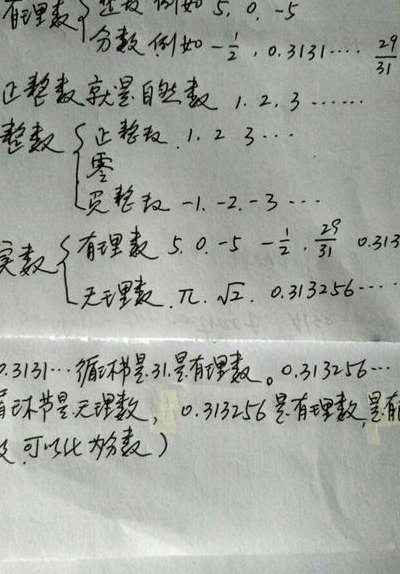 有理数{整数 例如 5, 0, -5
分数 例如 -1/2, 0.3131…… 29/31
正整数就是自然数 1, 2, 3 ……
整数{正整数, 1, 2 3 …
零
负整数 -1, -2, -3 …
实数{有理数 5, 0, -5 -1/2, 29/31 0.313
无理数, π, √2, 0.313256……
0.3131…循环节是31, 是有理数。0.313256…
循环节是无理数, 0.313256 是有理数, 是有
可以化为分数)